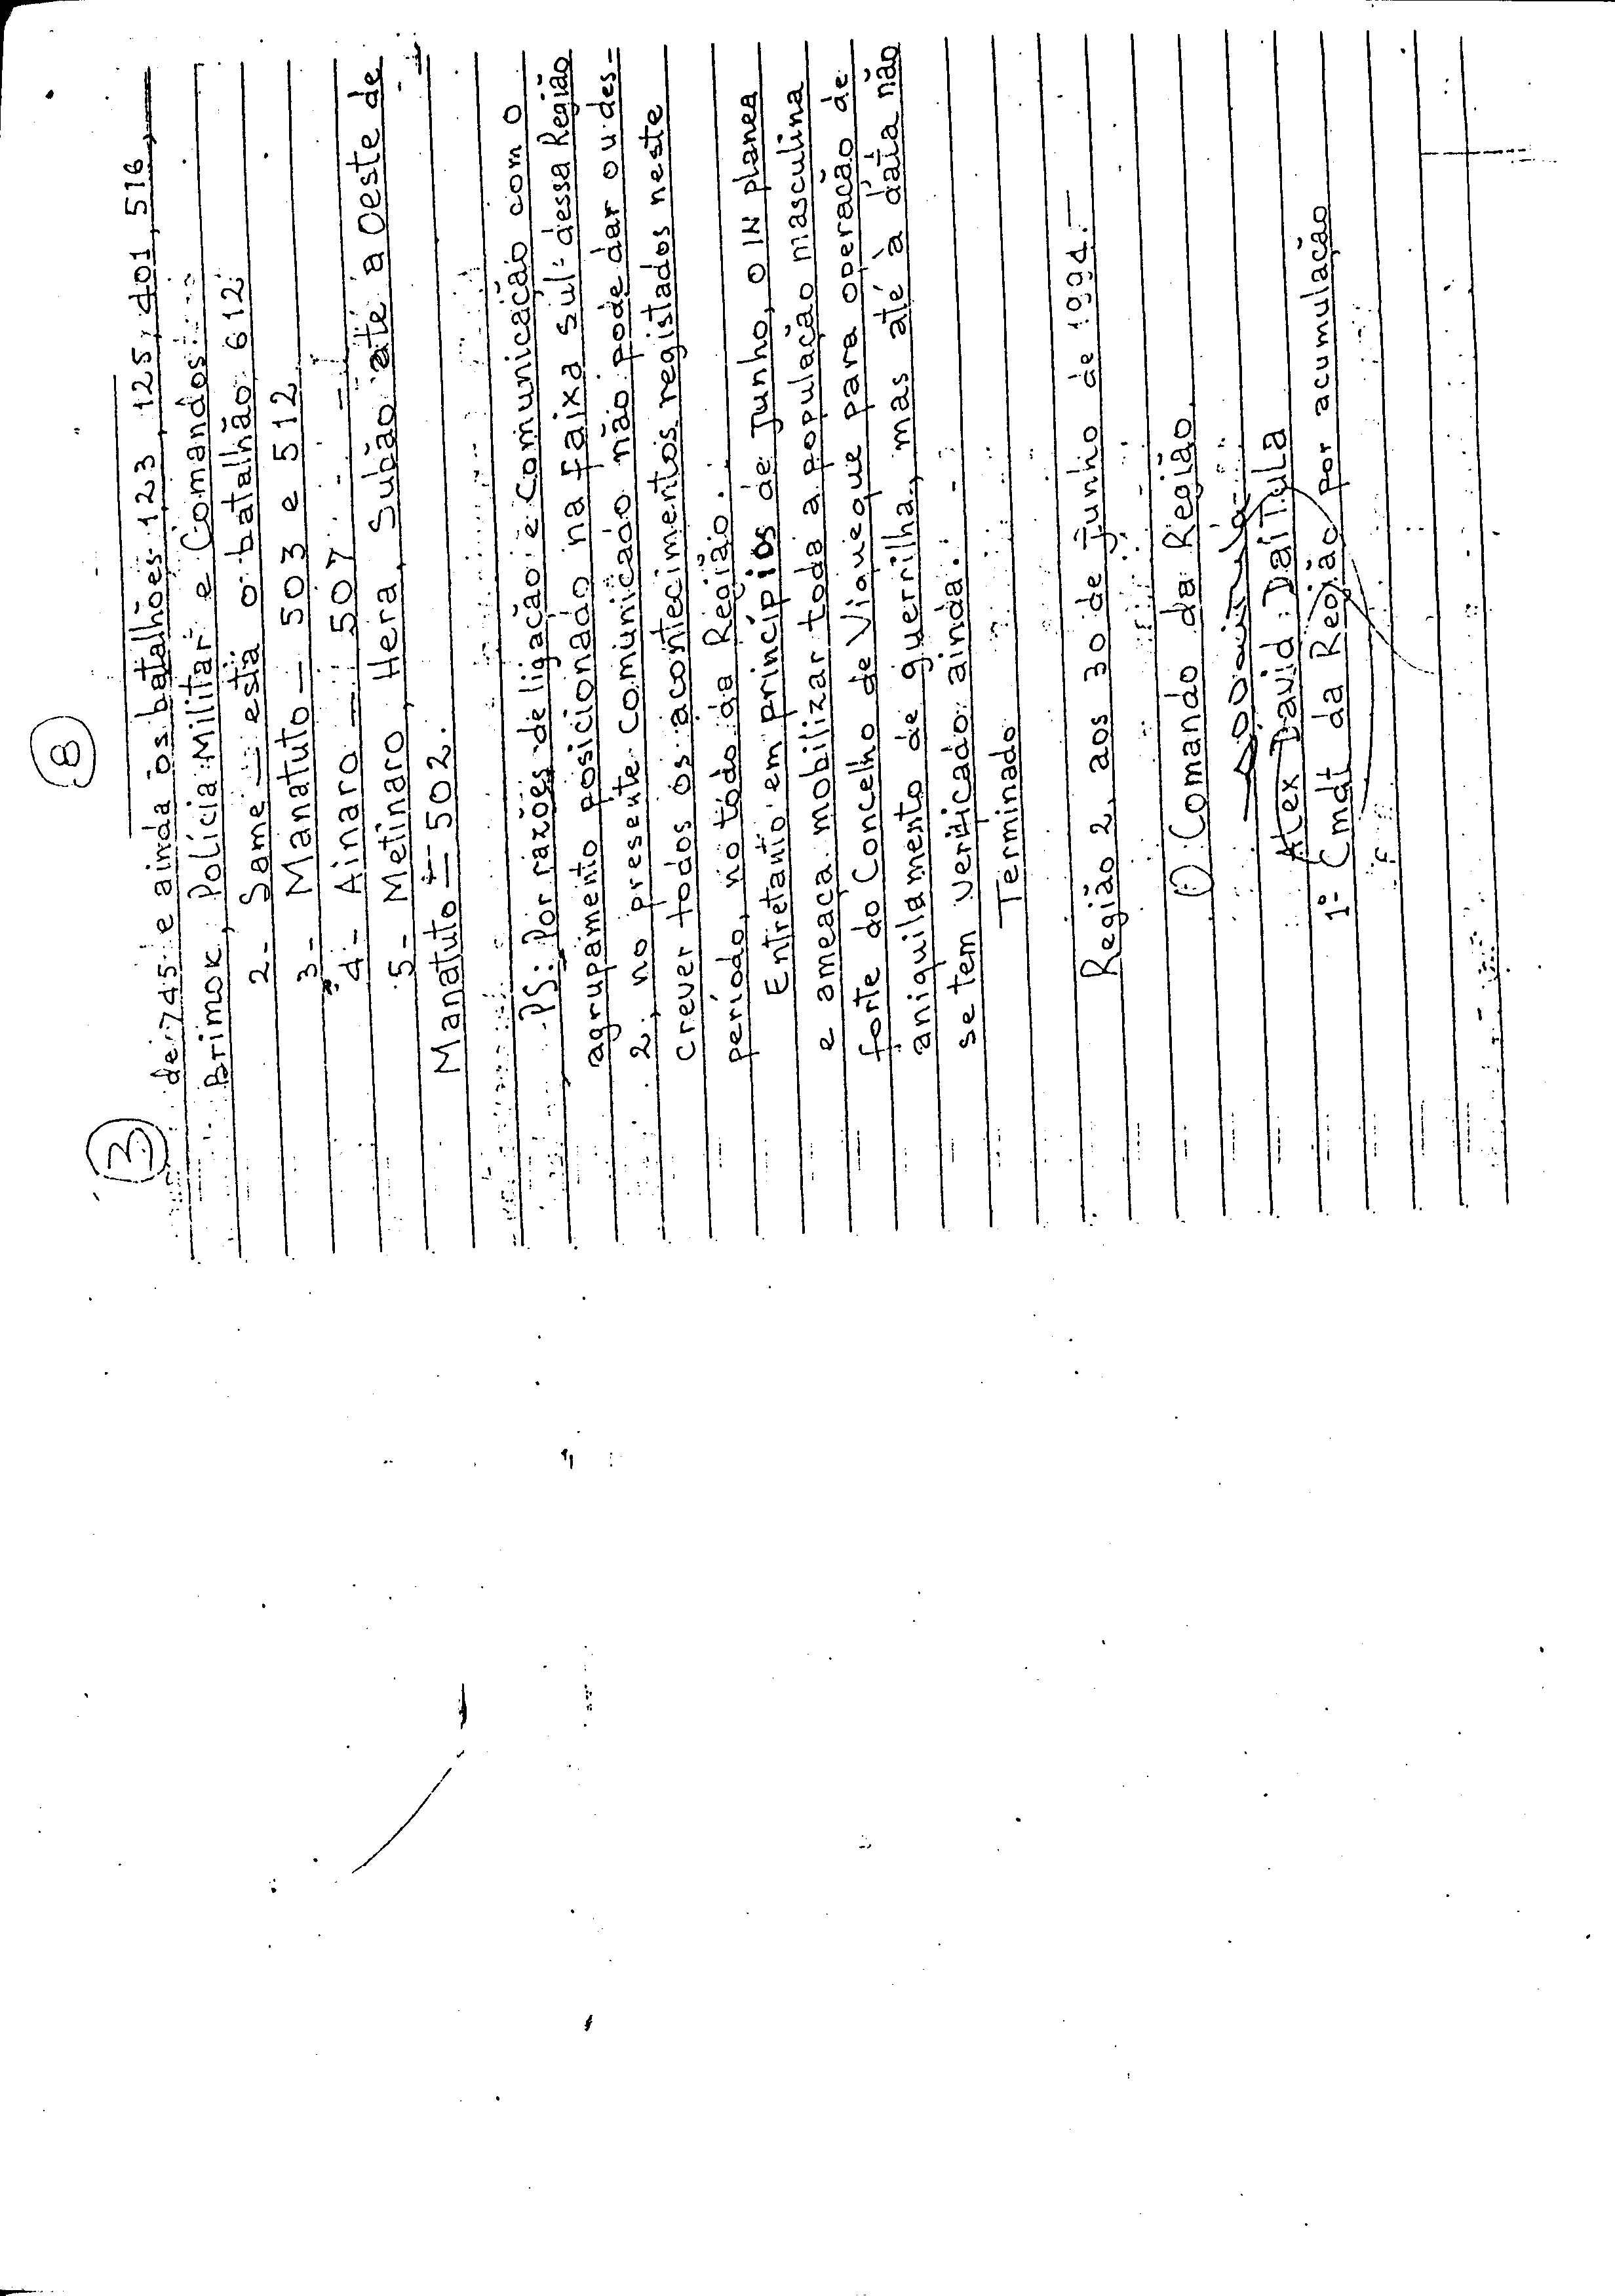 8
3
de 745 e ainda os batalhões 123, 125, 401, 516,
Brimok, Polícia Militar e Comandos.
2- Same — está o batalhão 612.
3- Manatuto — 503 e 512
4- Ainaro — 507.
5- Metinaro, Hera, Subão até a Oeste de
Manatuto — 502.
PS: Por razões de ligação e Comunicação com o
agrupamento posicionado na faixa sul dessa Região
2, no presente Comunicado não pode dar ou des-
crever todos os acontecimentos registados neste
período, no todo da Região.
Entretanto em princípios de Junho, o IN planea
e ameaça mobilizar toda a população masculina
forte do Concelho de Viqueque para operação de
aniquilamento de guerrilha, mas até à data não
se tem verificado ainda.
Terminado
Região 2, aos 30 de Junho de 1994.—
O Comando da Região
Alex David Daítula
1º Cmdt da Região por acumulação